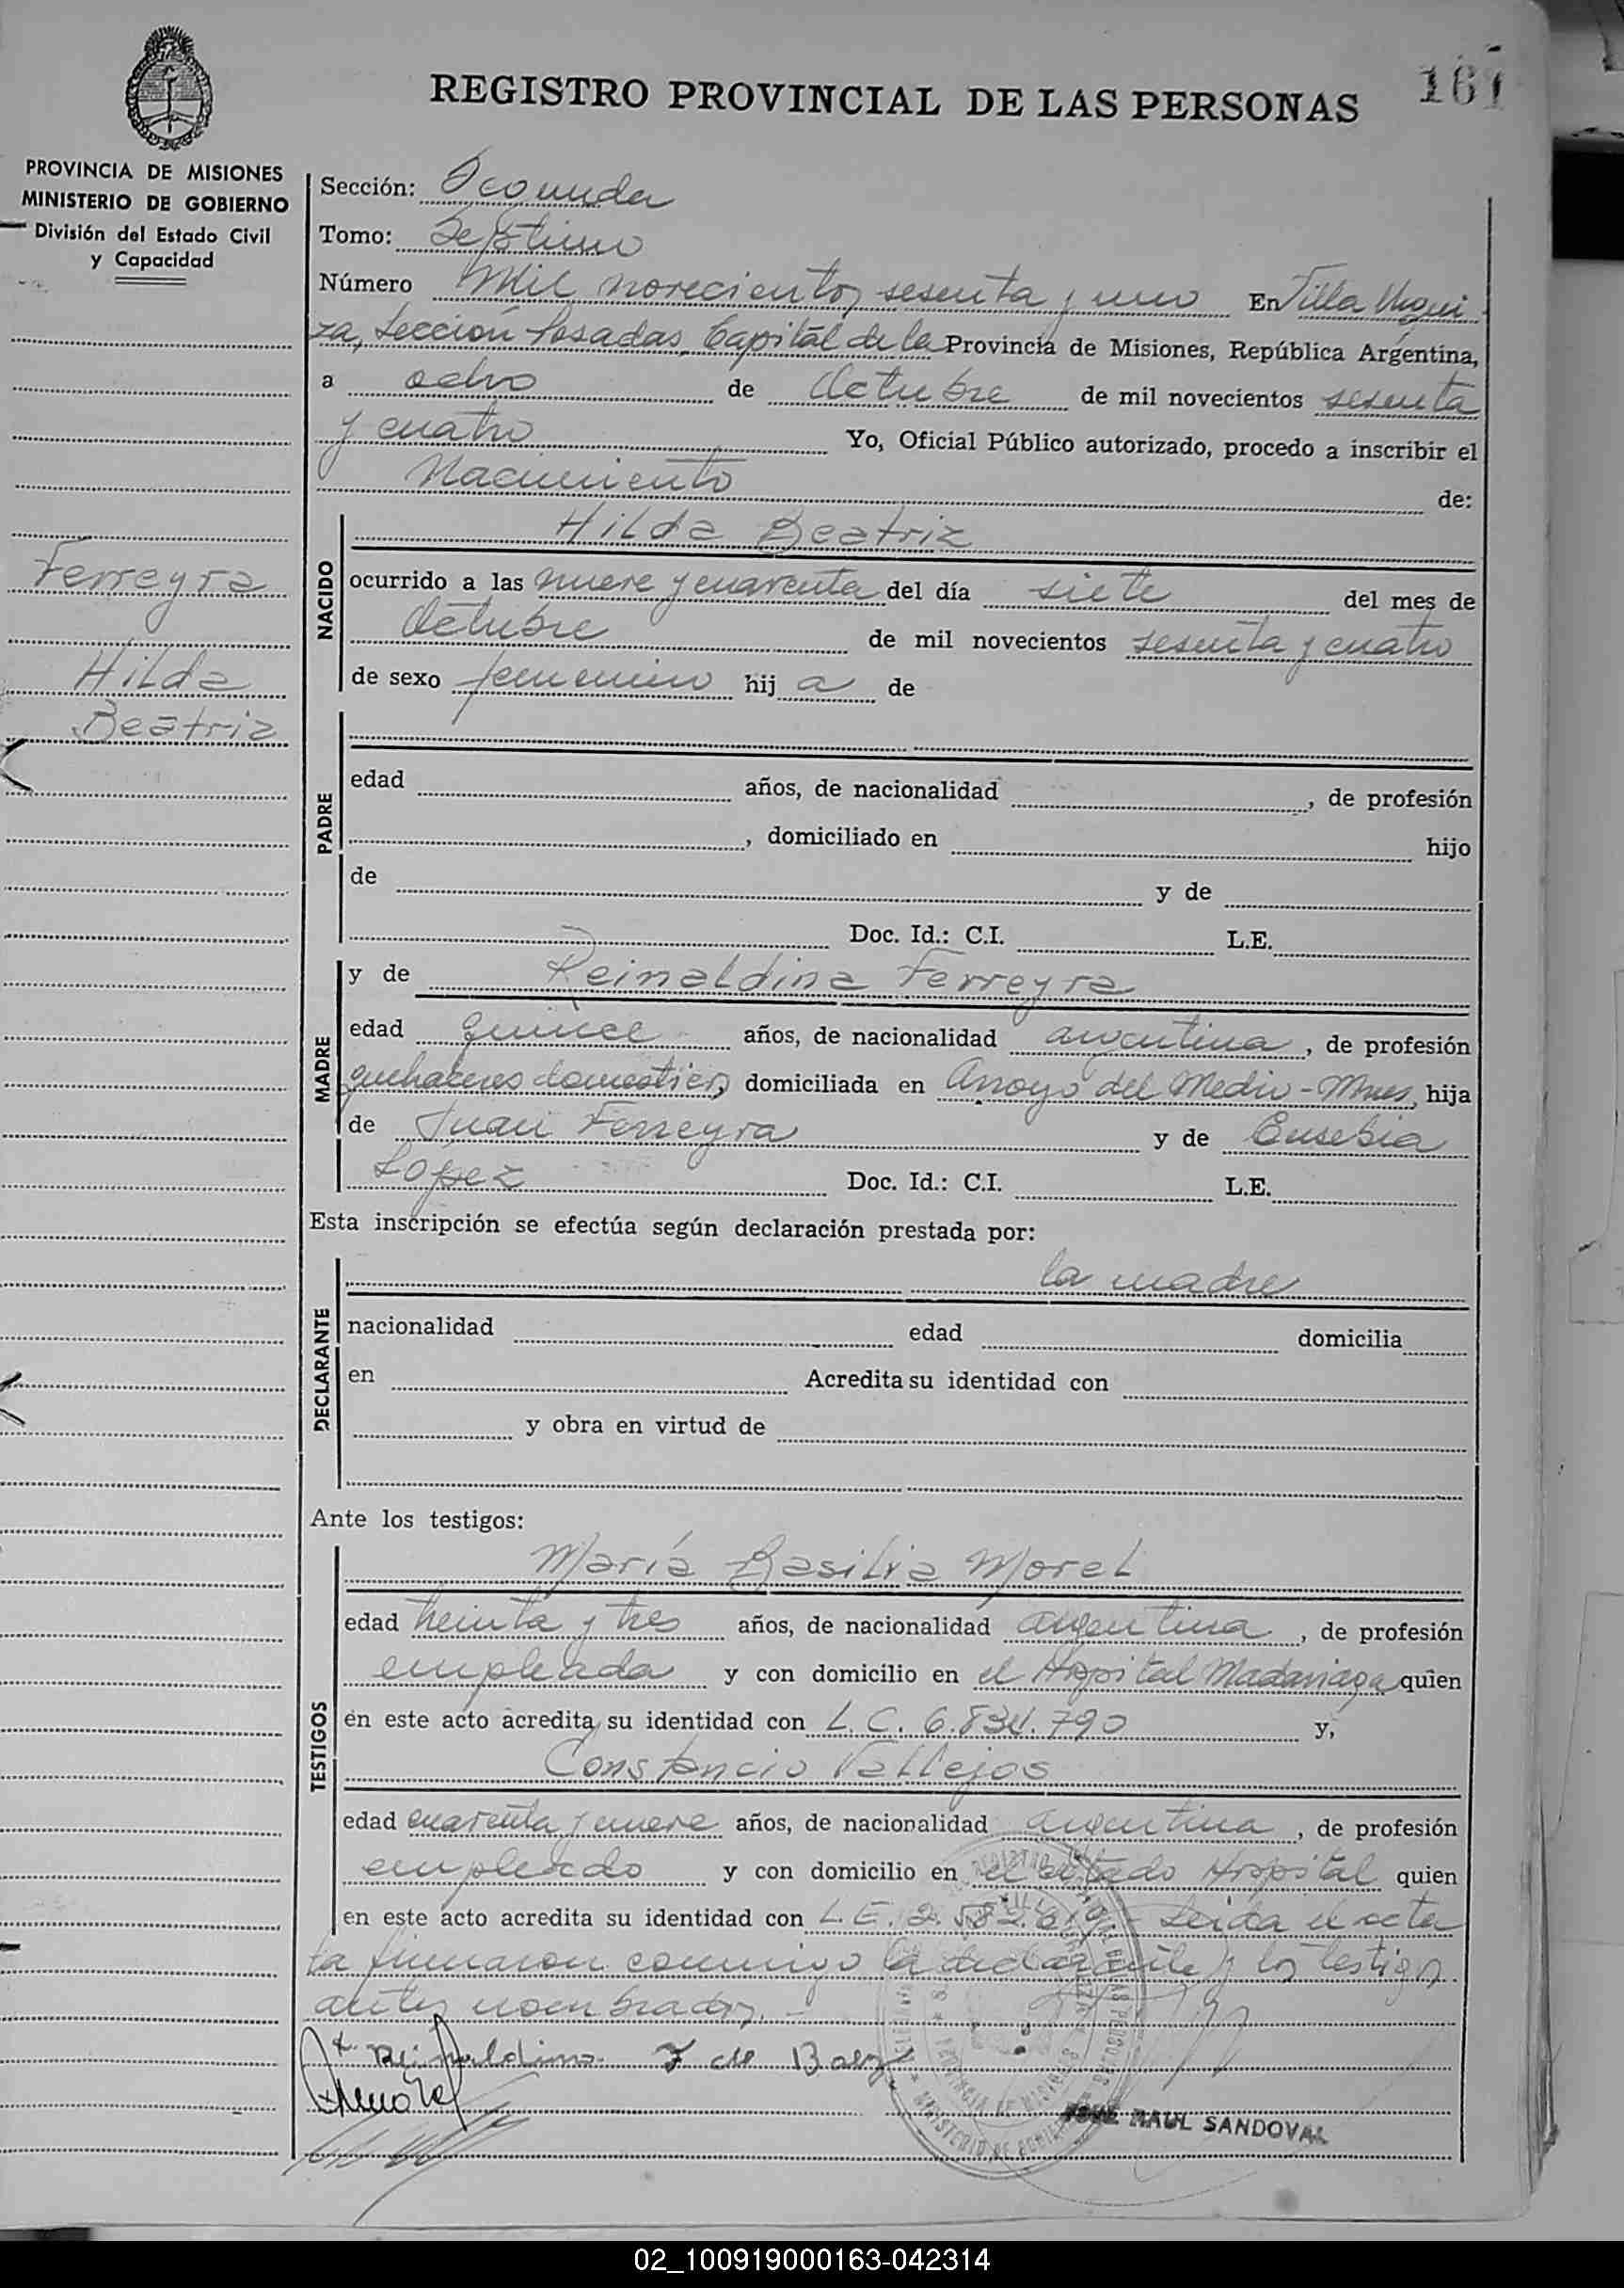 REGISTRO PROVINCIAL DE LAS PERSONAS
161
PROVINCIA DE MISIONES
MINISTERIO DE GOBIERNO
División del Estado Civil
y Capacidad
Ferreyra
Hilda
Beatriz
Sección: Segunda
Tomo: Septimo
Número Mil novecientos sesenta y uno En Villa Urqui
za, Sección Posadas, Capital de la Provincia de Misiones, República Argentina,
a ocho de Octubre de mil novecientos sesenta
y cuatro Yo, Oficial Público autorizado, procedo a inscribir el
Nacimiento de:
NACIDO
Hilda Beatriz
ocurrido a las nueve y cuarenta del día siete del mes de
Octubre de mil novecientos sesenta y cuatro
de sexo femenino hija de
PADRE
edad años, de nacionalidad , de profesión
, domiciliado en hijo
de y de
Doc. Id.: C.I. L.E.
MADRE
y de Reinaldina Ferreyra
edad quince años, de nacionalidad argentina, de profesión
quehaceres domesticos, domiciliada en Arroyo del Medio - Mnes, hija
de Juan Ferreyra y de Eusebia
López Doc. Id.: C.I. L.E.
Esta inscripción se efectúa según declaración prestada por:
DECLARANTE
la madre
nacionalidad edad domicilia
en Acredita su identidad con
y obra en virtud de
Ante los testigos:
TESTIGOS
María Basilia Morel
edad treinta y tres años, de nacionalidad argentina, de profesión
empleada y con domicilio en el Hospital Madariaga quien
en este acto acredita su identidad con L.C. 6.834.790 y,
Constancio Vallejos
edad cuarenta y nueve años, de nacionalidad argentina, de profesión
empleado y con domicilio en el citado Hospital quien
en este acto acredita su identidad con L.E. Leída el acta
la firmaron conmigo la declarante y los testigos
antes nombrados.-
Reinaldina F de Baez
JOSE RAUL SANDOVAL
02_100919000163-042314